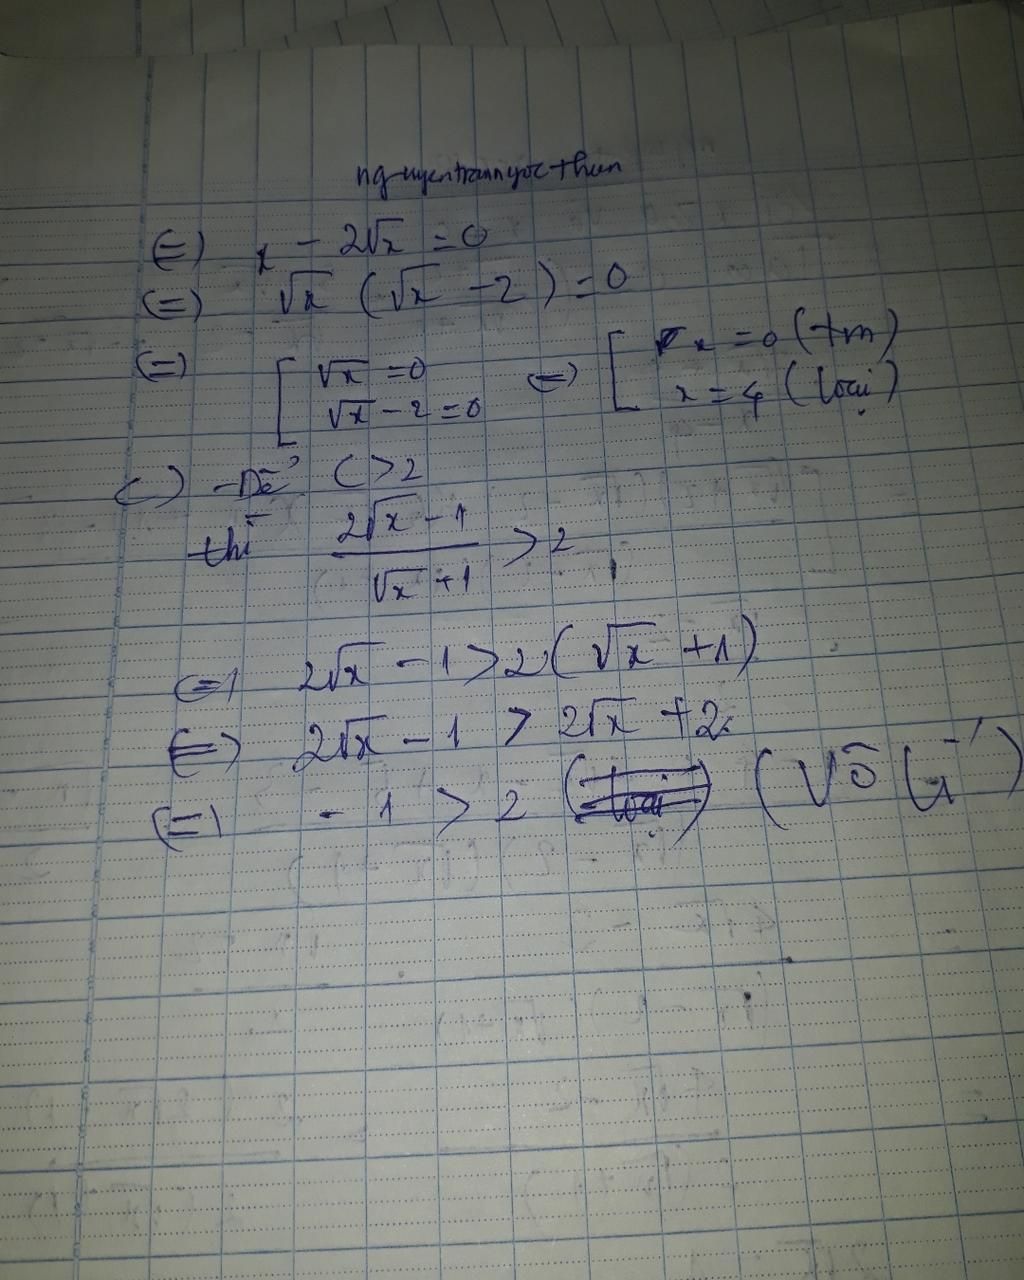 nguyentranngocthun
(=) x - 2√x = 0
(=) √x (√x - 2) = 0
(=) [ √x = 0 (=) [ x = 0 (tm)
√x - 2 = 0 x = 4 (loại)
c) - Để C > 2
thì (2√x - 1)/(√x + 1) > 2
(=) 2√x - 1 > 2(√x + 1)
(=) 2√x - 1 > 2√x + 2
(=) - 1 > 2 (Vô lí)